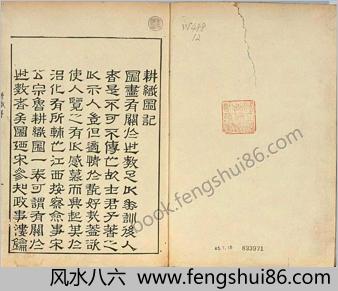 耕織圖記
圖畫有關於世教足以垂訓後人
者是不可不傳也故士君子著之
以示人豈但適情於翫好哉蓋欲
使人覽之有以感慕而興起其於
治化有所輔也江西按察僉事宋
公宗魯耕織圖一卷可謂有關於
世教者矣圖廼宋參知政事樓
12
893971
book.fengshui86.com
风水八六 www.fengshui86.com